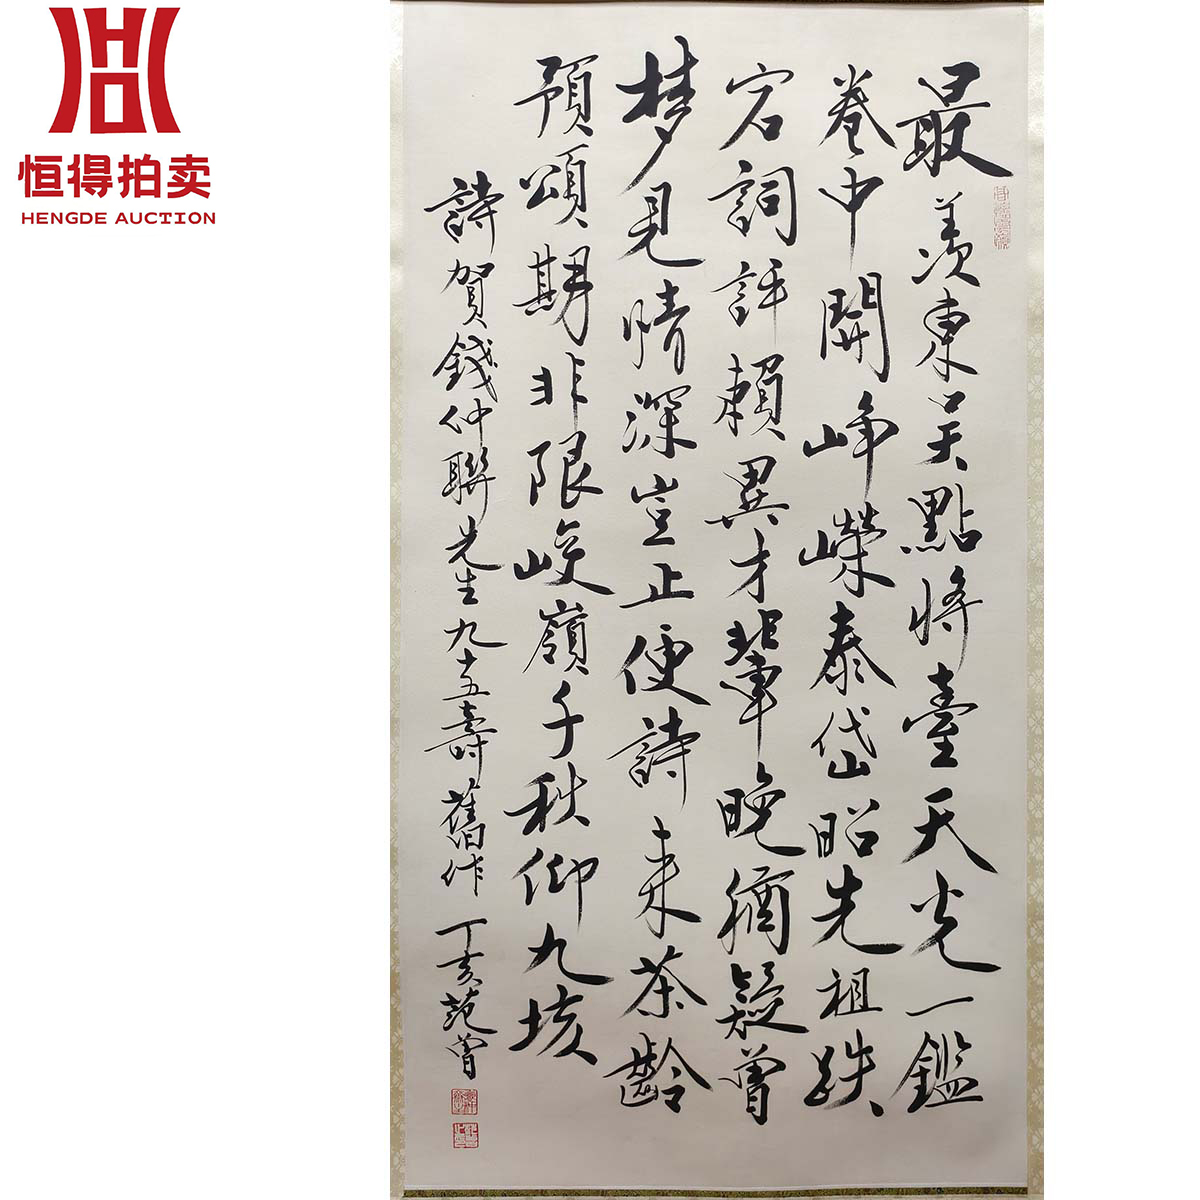 恒得拍卖
HENGDE AUCTION
最羨東吴點將臺天光一鑑
卷中開崢嶸泰岱昭先祖跌
宕詞評賴異才輩晚猶疑曾
梦見情深豈止便詩来茶齡
預頌期非限峻嶺千秋仰九垓
詩賀錢仲聯先生九十五壽舊作 丁亥范曾